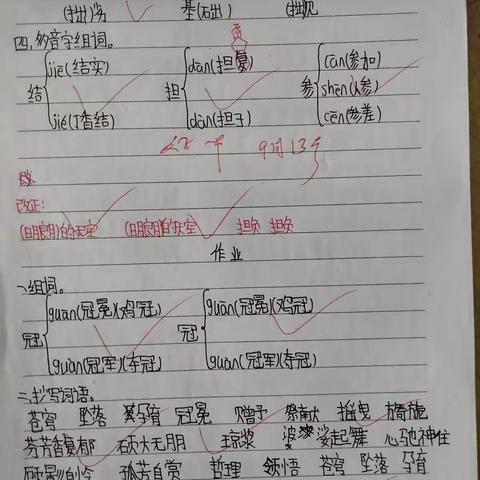 (拙)劣 基(础) (拙)见
四、多音字组词。
结 jiē(结实) 担 dān(担复) 负 参 cān(参加)
shēn(人参)
jié(丁香结) dàn(担子) cēn(参差)
9月13号
改正:
(明朗)的天空 (明朗)的天空 担负 担负
作业
一、组词。
冠 guān(冠冕)(鸡冠) 冠 guān(冠冕)(鸡冠)
guàn(冠军)(夺冠) guàn(冠军)(夺冠)
二、抄写词语。
苍穹 坠落 孕育 冠冕 赠予 祭献 摇曳 旖旎
芬芳香复郁 硕大无朋 琼浆 婆娑起舞 心驰神往
顾影自怜 孤芳自赏 哲理 领悟 苍穹 坠落 孕育